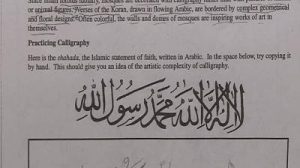 mosques are decorated with calligraphy
or animal figures. Verses of the Koran, drawn in flowing Arabic, are bordered by complex geometrical
and floral designs. Often colorful, the walls and domes of mosques are inspiring works of art in
themselves.
Practicing Calligraphy
Here is the shahada, the Islamic statement of faith, written in Arabic. In the space below, try copying it
by hand. This should give you an idea of the artistic complexity of calligraphy.
لا إله إلا الله محمد رسول الله